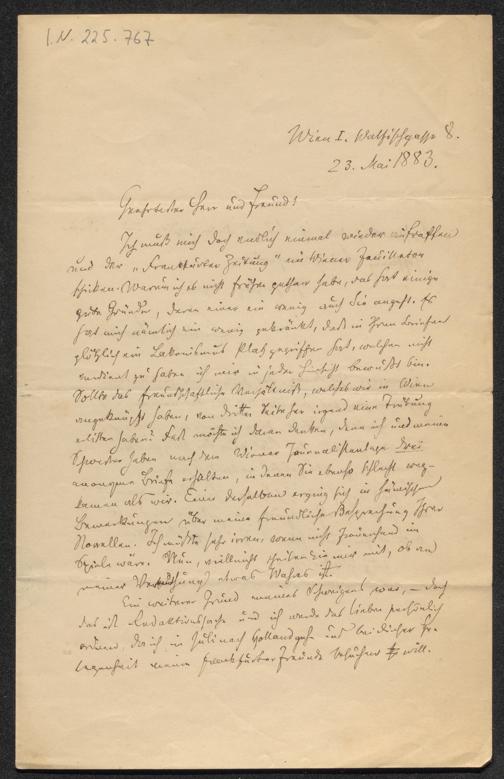 I.N. 225.767
Wien I. Wallfischgasse 8.
23. Mai 1883.
Geehrtester Herr und Freund!
Ich muß mich doch endlich einmal wieder aufraffen
und der „Frankfurter Zeitung" ein Wiener Feuilleton
schicken. Warum ich es nicht früher gethan habe, das hat einige
gute Gründe, deren einer ein wenig auch Sie angeht. Es
hat mich nämlich ein wenig gekränkt, daß in Ihren Briefen
plötzlich ein Lakonismus Platz gegriffen hat, welchen nicht
verdient zu haben ich mir in jeder Hinsicht bewußt bin.
Sollte das freundschaftliche Verhältniß, welches wir in Wien
angeknüpft haben, von dritter Seite her irgend eine Trübung
erlitten haben? Fast möchte ich daran denken, denn ich und meine
Schwester haben nach dem Wiener Journalistentage drei
anonyme Briefe erhalten, in denen Sie ebenso schlecht weg-
kamen als wir. Einer derselben erging sich in hämischen
Bemerkungen über meine freundliche Besprechung Ihrer
Novellen. Ich müßte sehr irren, wenn nicht Frauenhand im
Spiele wäre. Nun, vielleicht theilen Sie mir mit, ob an
meiner Vermuthung etwas Wahres ist.
Ein weiterer Grund meines Schweigens war, — doch
das ist Redaktionssache und ich werde das lieber persönlich
ordnen, da ich im Juli nach Holland gehe und bei dieser Ge-
legenheit meine Frankfurter Freunde besuchen will.